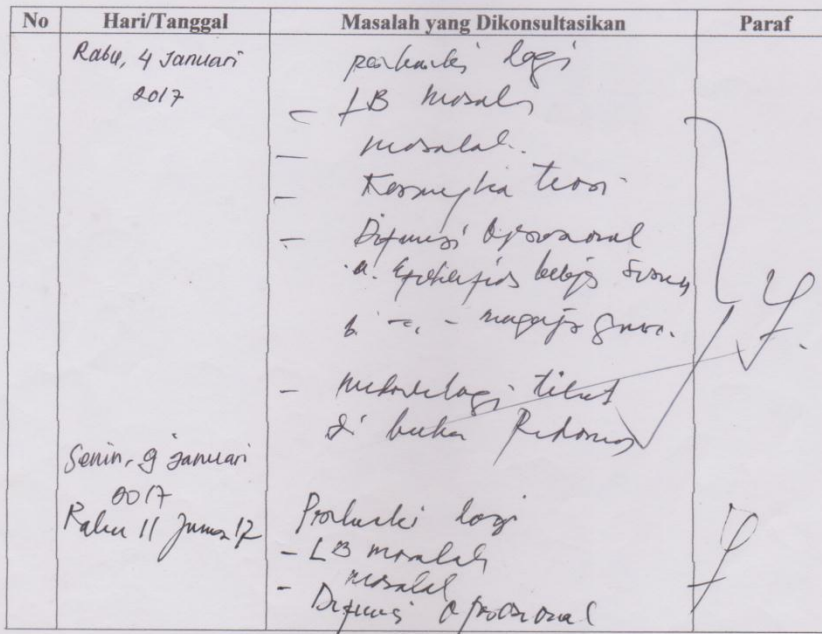 No Hari/Tanggal Masalah yang Dikonsultasikan Paraf
Rabu, 4 Januari
2017
perbaiki lagi
- LB masalah
- masalah
- Kerangka teori
- Difinisi Oprasional
a. Efektifitas belajar siswa
b. - , - mengajar guru.
- metodelogi lihat
di buku Pedoman
Senin, 9 Januari
2017
Rabu 11 Janua 17
Perbaiki lagi
- LB masalah
- masalah
Difinisi Oprasional